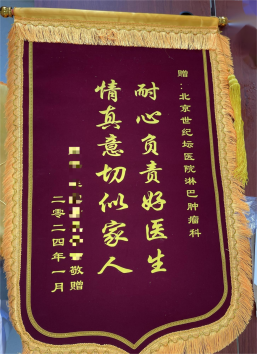 赠：北京世纪坛医院淋巴肿瘤科
耐心负责好医生
情真意切似家人
敬赠
二零二四年一月